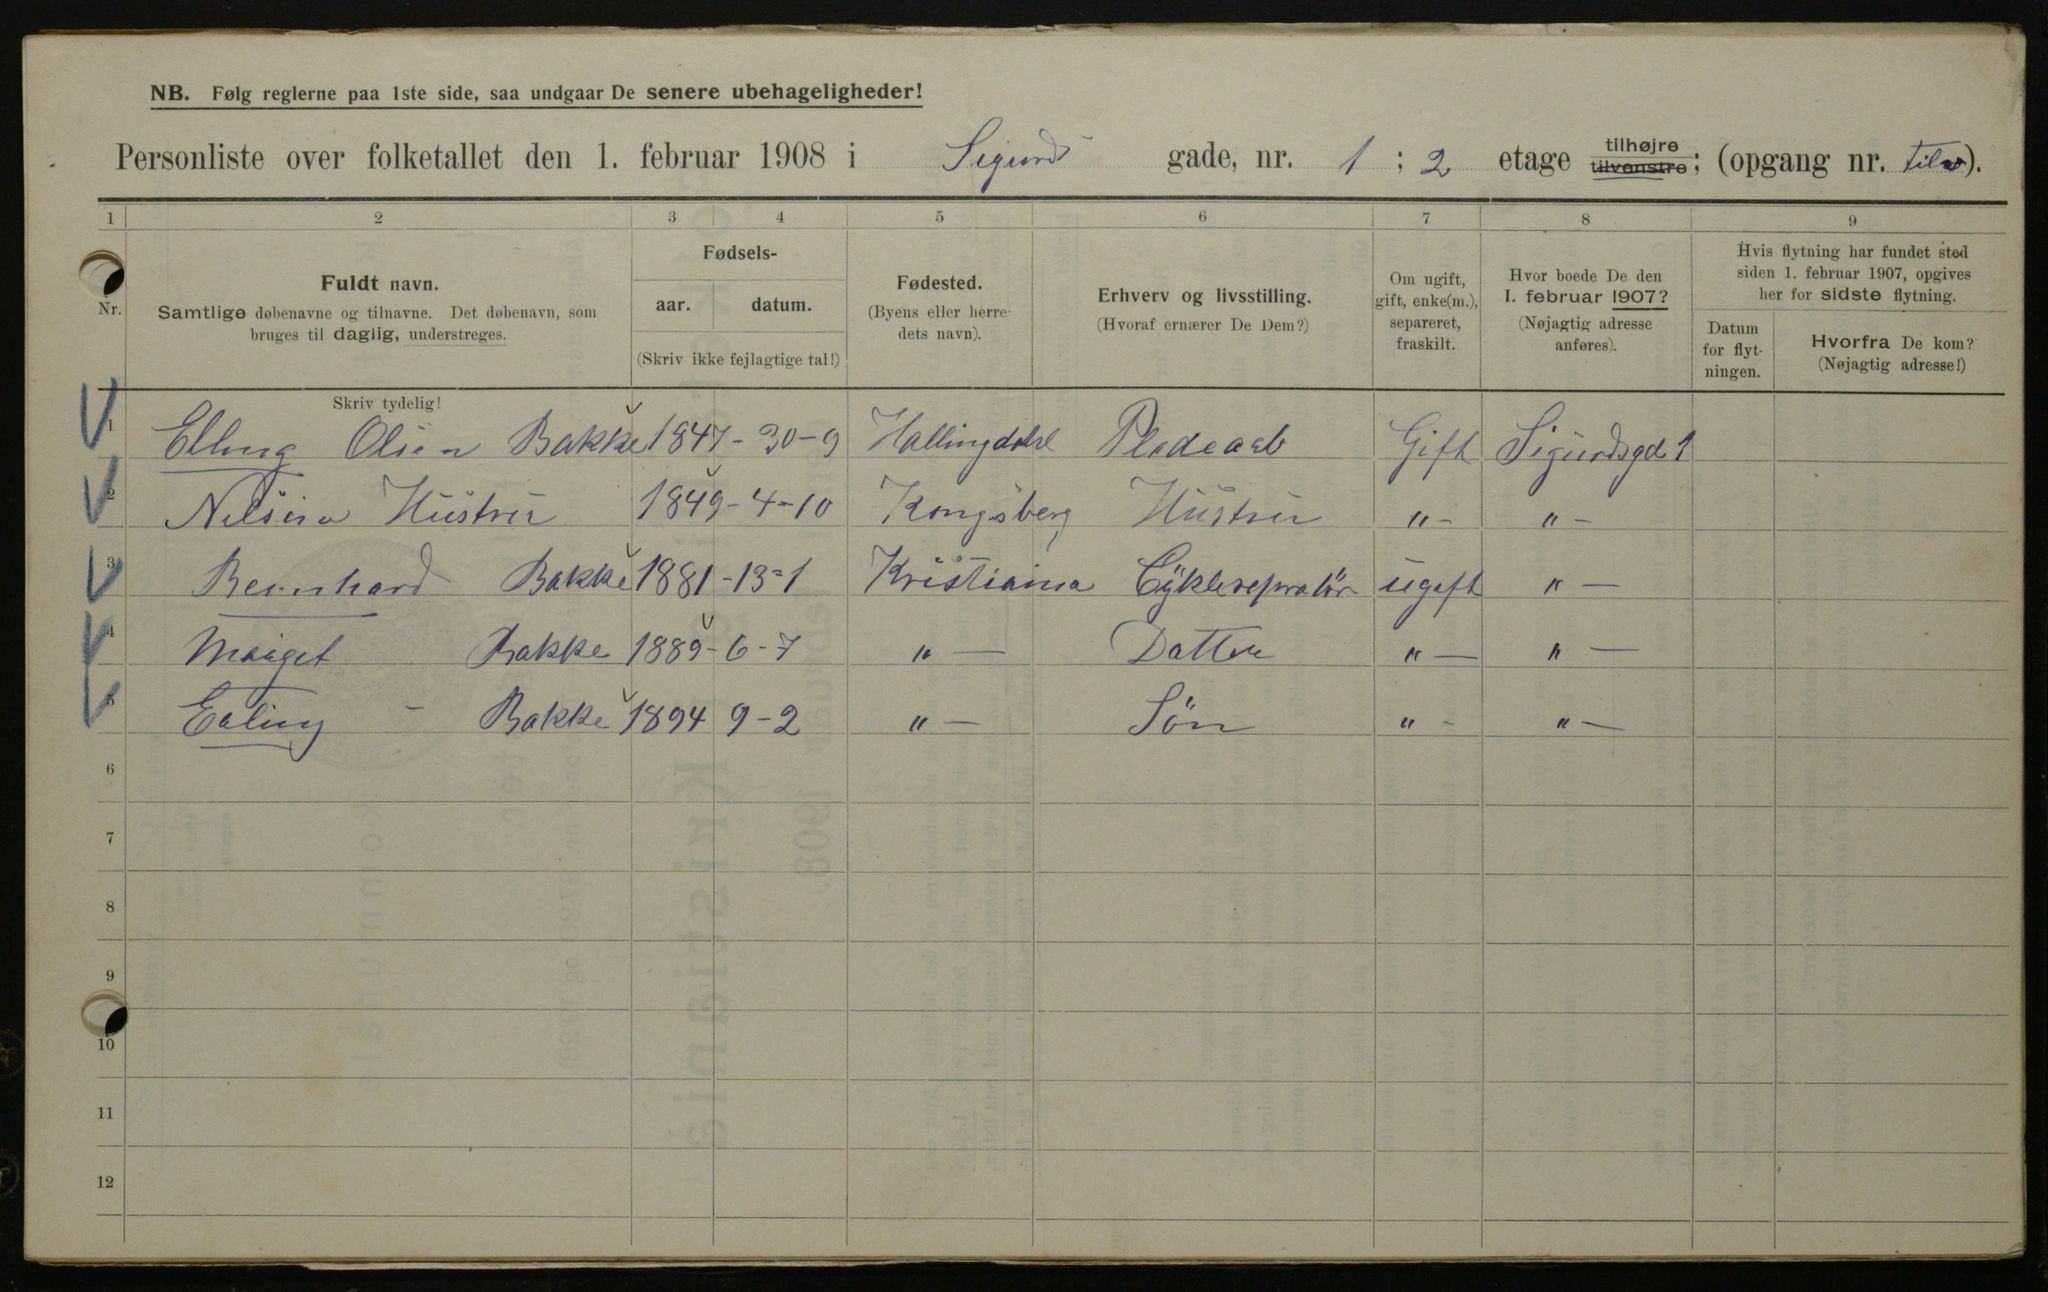 NB. Følg reglerne paa 1ste side, saa undgaar De senere ubehageligheder!
Personliste over folketallet den 1. februar 1908 i Sigurds gade, nr. 1 : 2 etage tilhøjre tilvenstre; (opgang nr. tilv).
1 2 3 4 5 6 7 8 9
Nr.
Fuldt navn.
Samtlige døbenavne og tilnavne. Det døbenavn, som
bruges til daglig, understreges.
Fødsels-
aar. datum.
(Skriv ikke fejlagtige tal!)
Fødested.
(Byens eller herre-
dets navn).
Erhverv og livsstilling.
(Hvoraf ernærer De Dem?)
Om ugift,
gift, enke(m.),
separeret,
fraskilt.
Hvor boede De den
1. februar 1907?
(Nøjagtig adresse
anføres).
Hvis flytning har fundet sted
siden 1. februar 1907, opgives
her for sidste flytning.
Datum
for flyt-
ningen.
Hvorfra De kom?
(Nøjagtig adresse!)
Skriv tydelig!
1 Elling Olsen Bakke 1847 - 30-9 Hallingdahl Pladearb Gift Sigurdsgd 1
2 Hustru 1849 - 4-10 Kongsberg Hustru " - " -
3 Bernhard Bakke 1881 - 13-1 Kristiania Cyklerepratör ugift " -
4 Bakke 1889 - 6-7 " - Datter " - " -
5 Erling - Bakke 1894 9-2 " - Sön " - " -
6
7
8
9
10
11
12